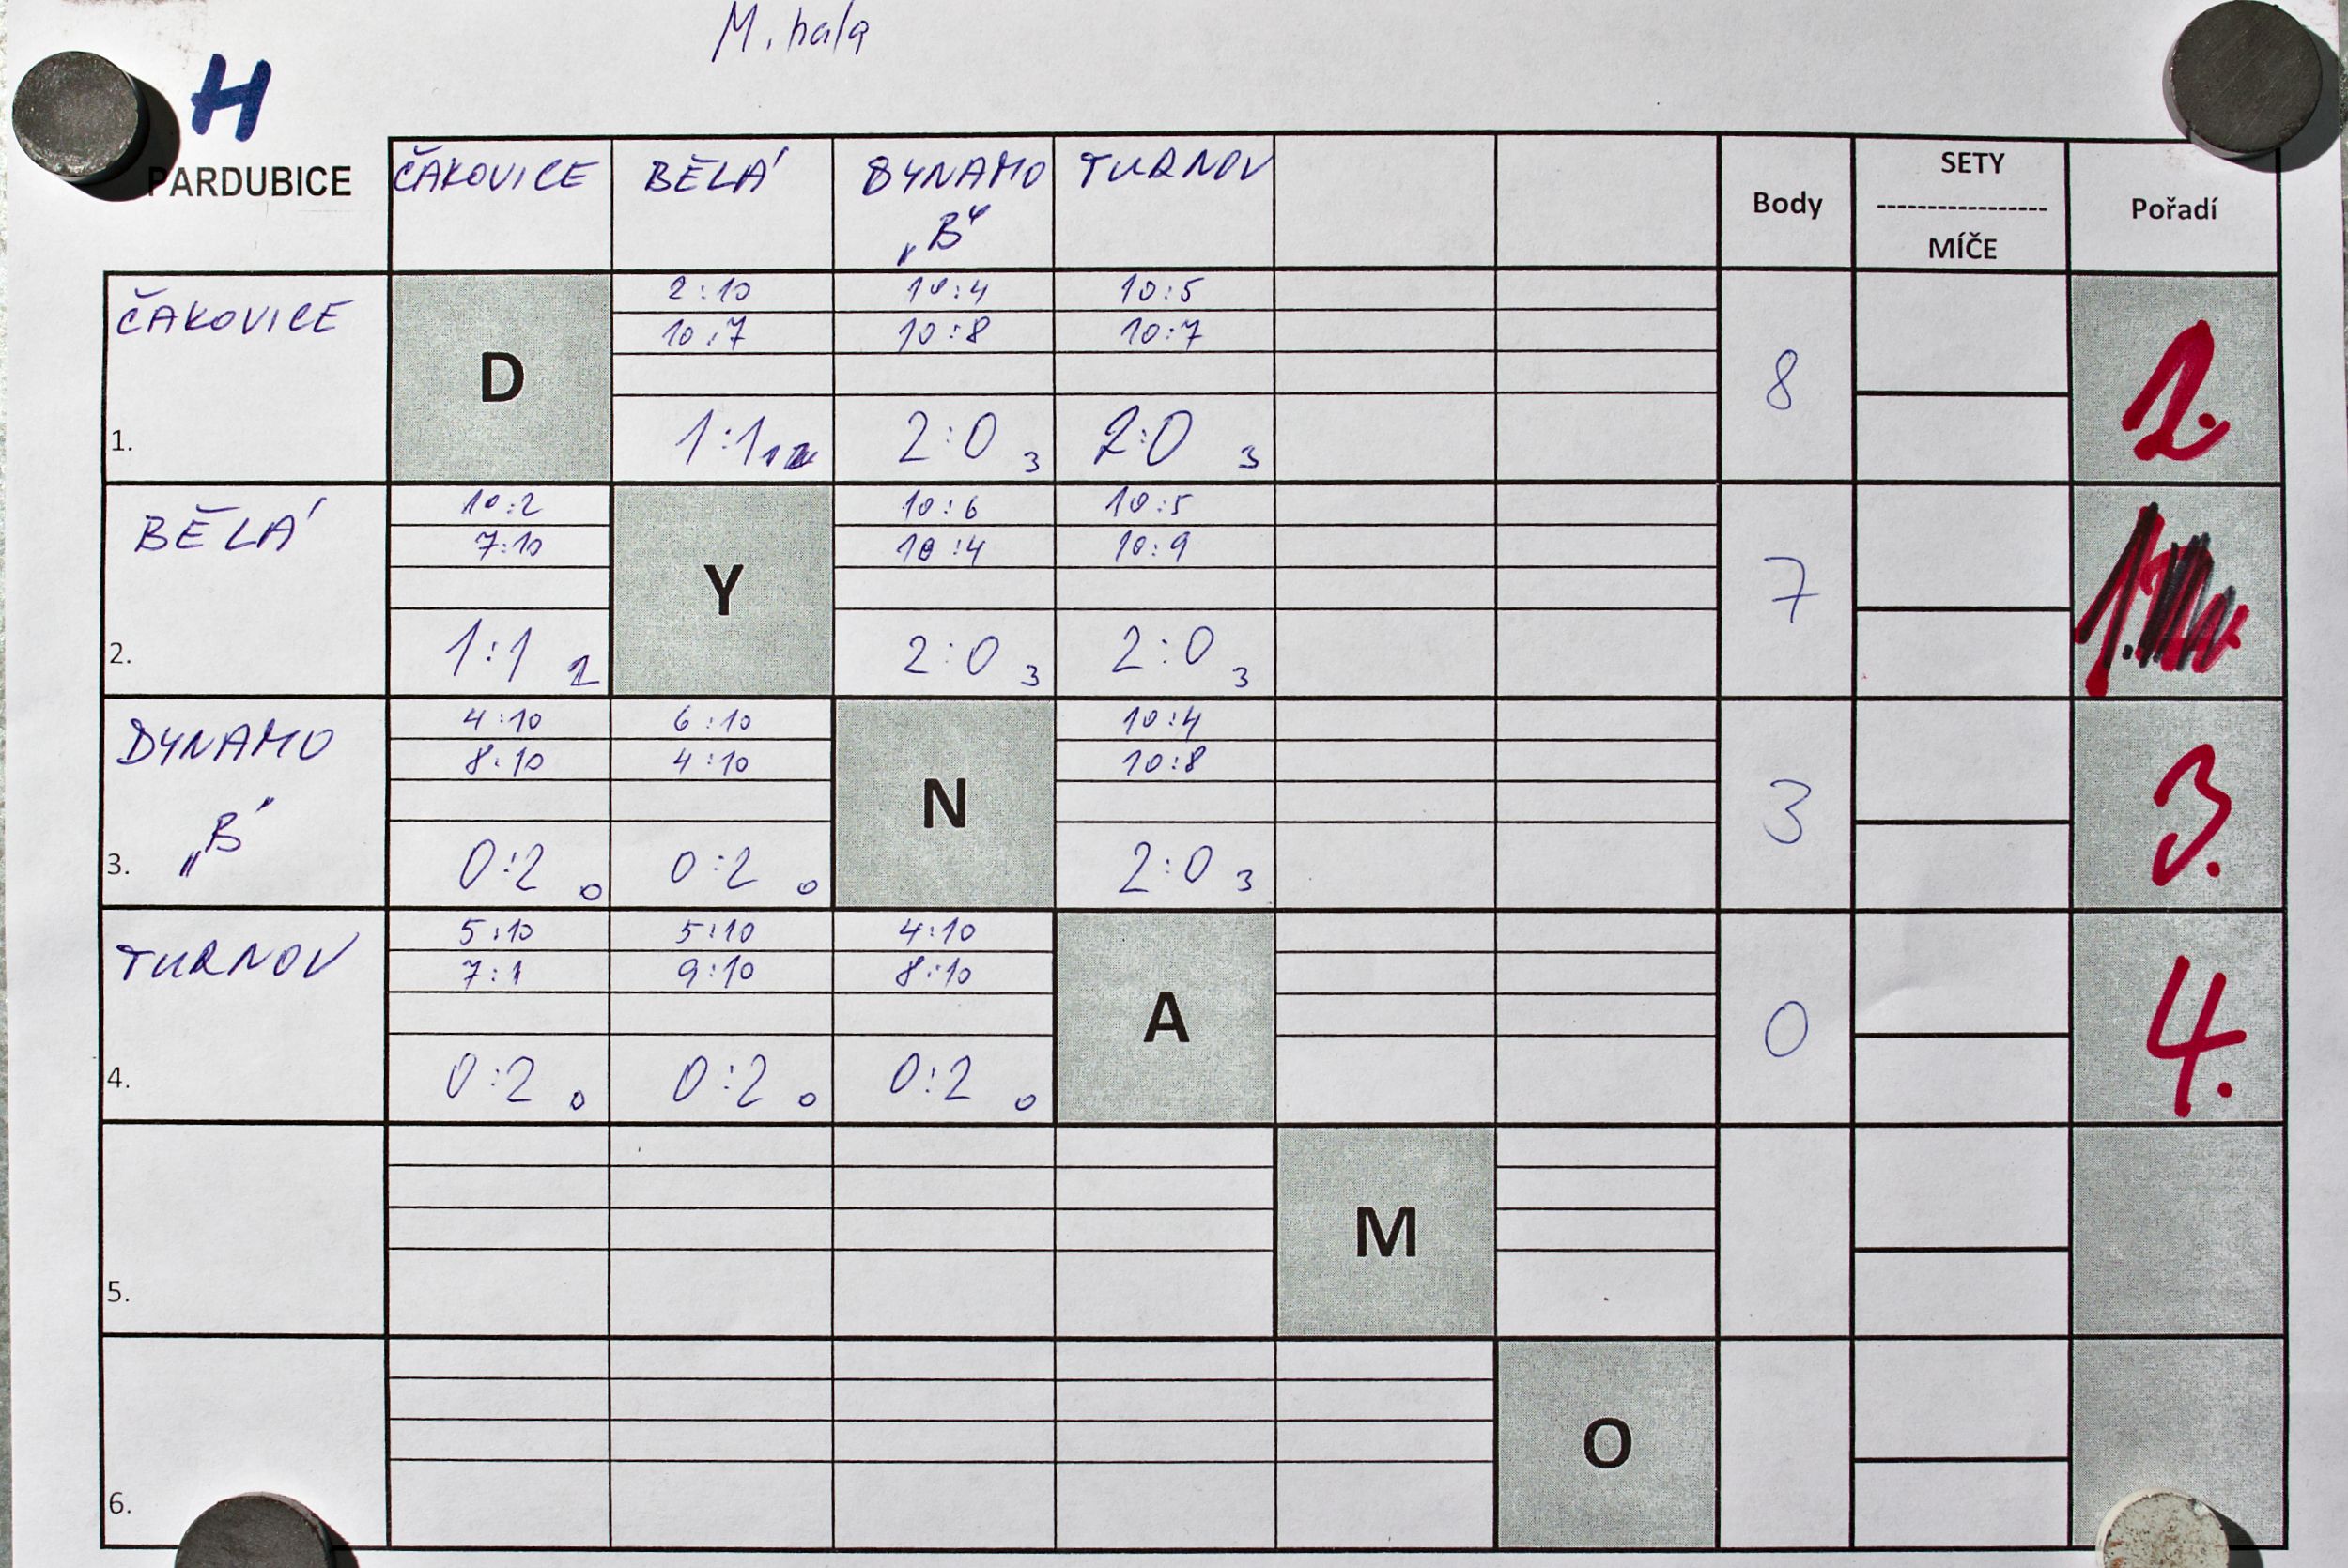 M. hala
H
PARDUBICE
ČAKOVICE BĚLÁ DYNAMO „B“ TURNOV Body SETY MÍČE Pořadí
ČAKOVICE
1.
D
2:10 10:4 10:5
10:7 10:8 10:7
1:1 2:0 3 2:0 3
8
2.
BĚLÁ
2.
10:2 10:6 10:5
7:10 10:4 10:9
Y
1:1 2:0 3 2:0 3
7
1.
DYNAMO
„B“
3.
4:10 6:10 10:4
8:10 4:10 10:8
N
0:2 0 0:2 0 2:0 3
3
3.
TURNOV
4.
5:10 5:10 4:10
7:1 9:10 8:10
A
0:2 0 0:2 0 0:2 0
0
4.
M
5.
O
6.